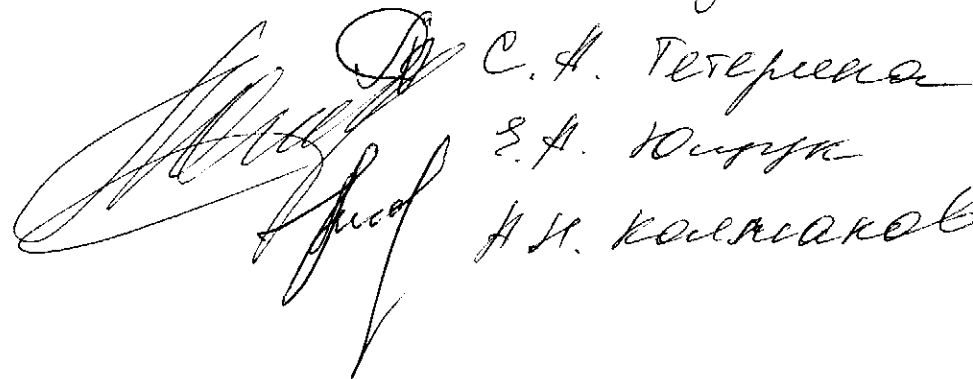 С.А. Тетерина
Е.А. Ющук
А.Н. Колмаков